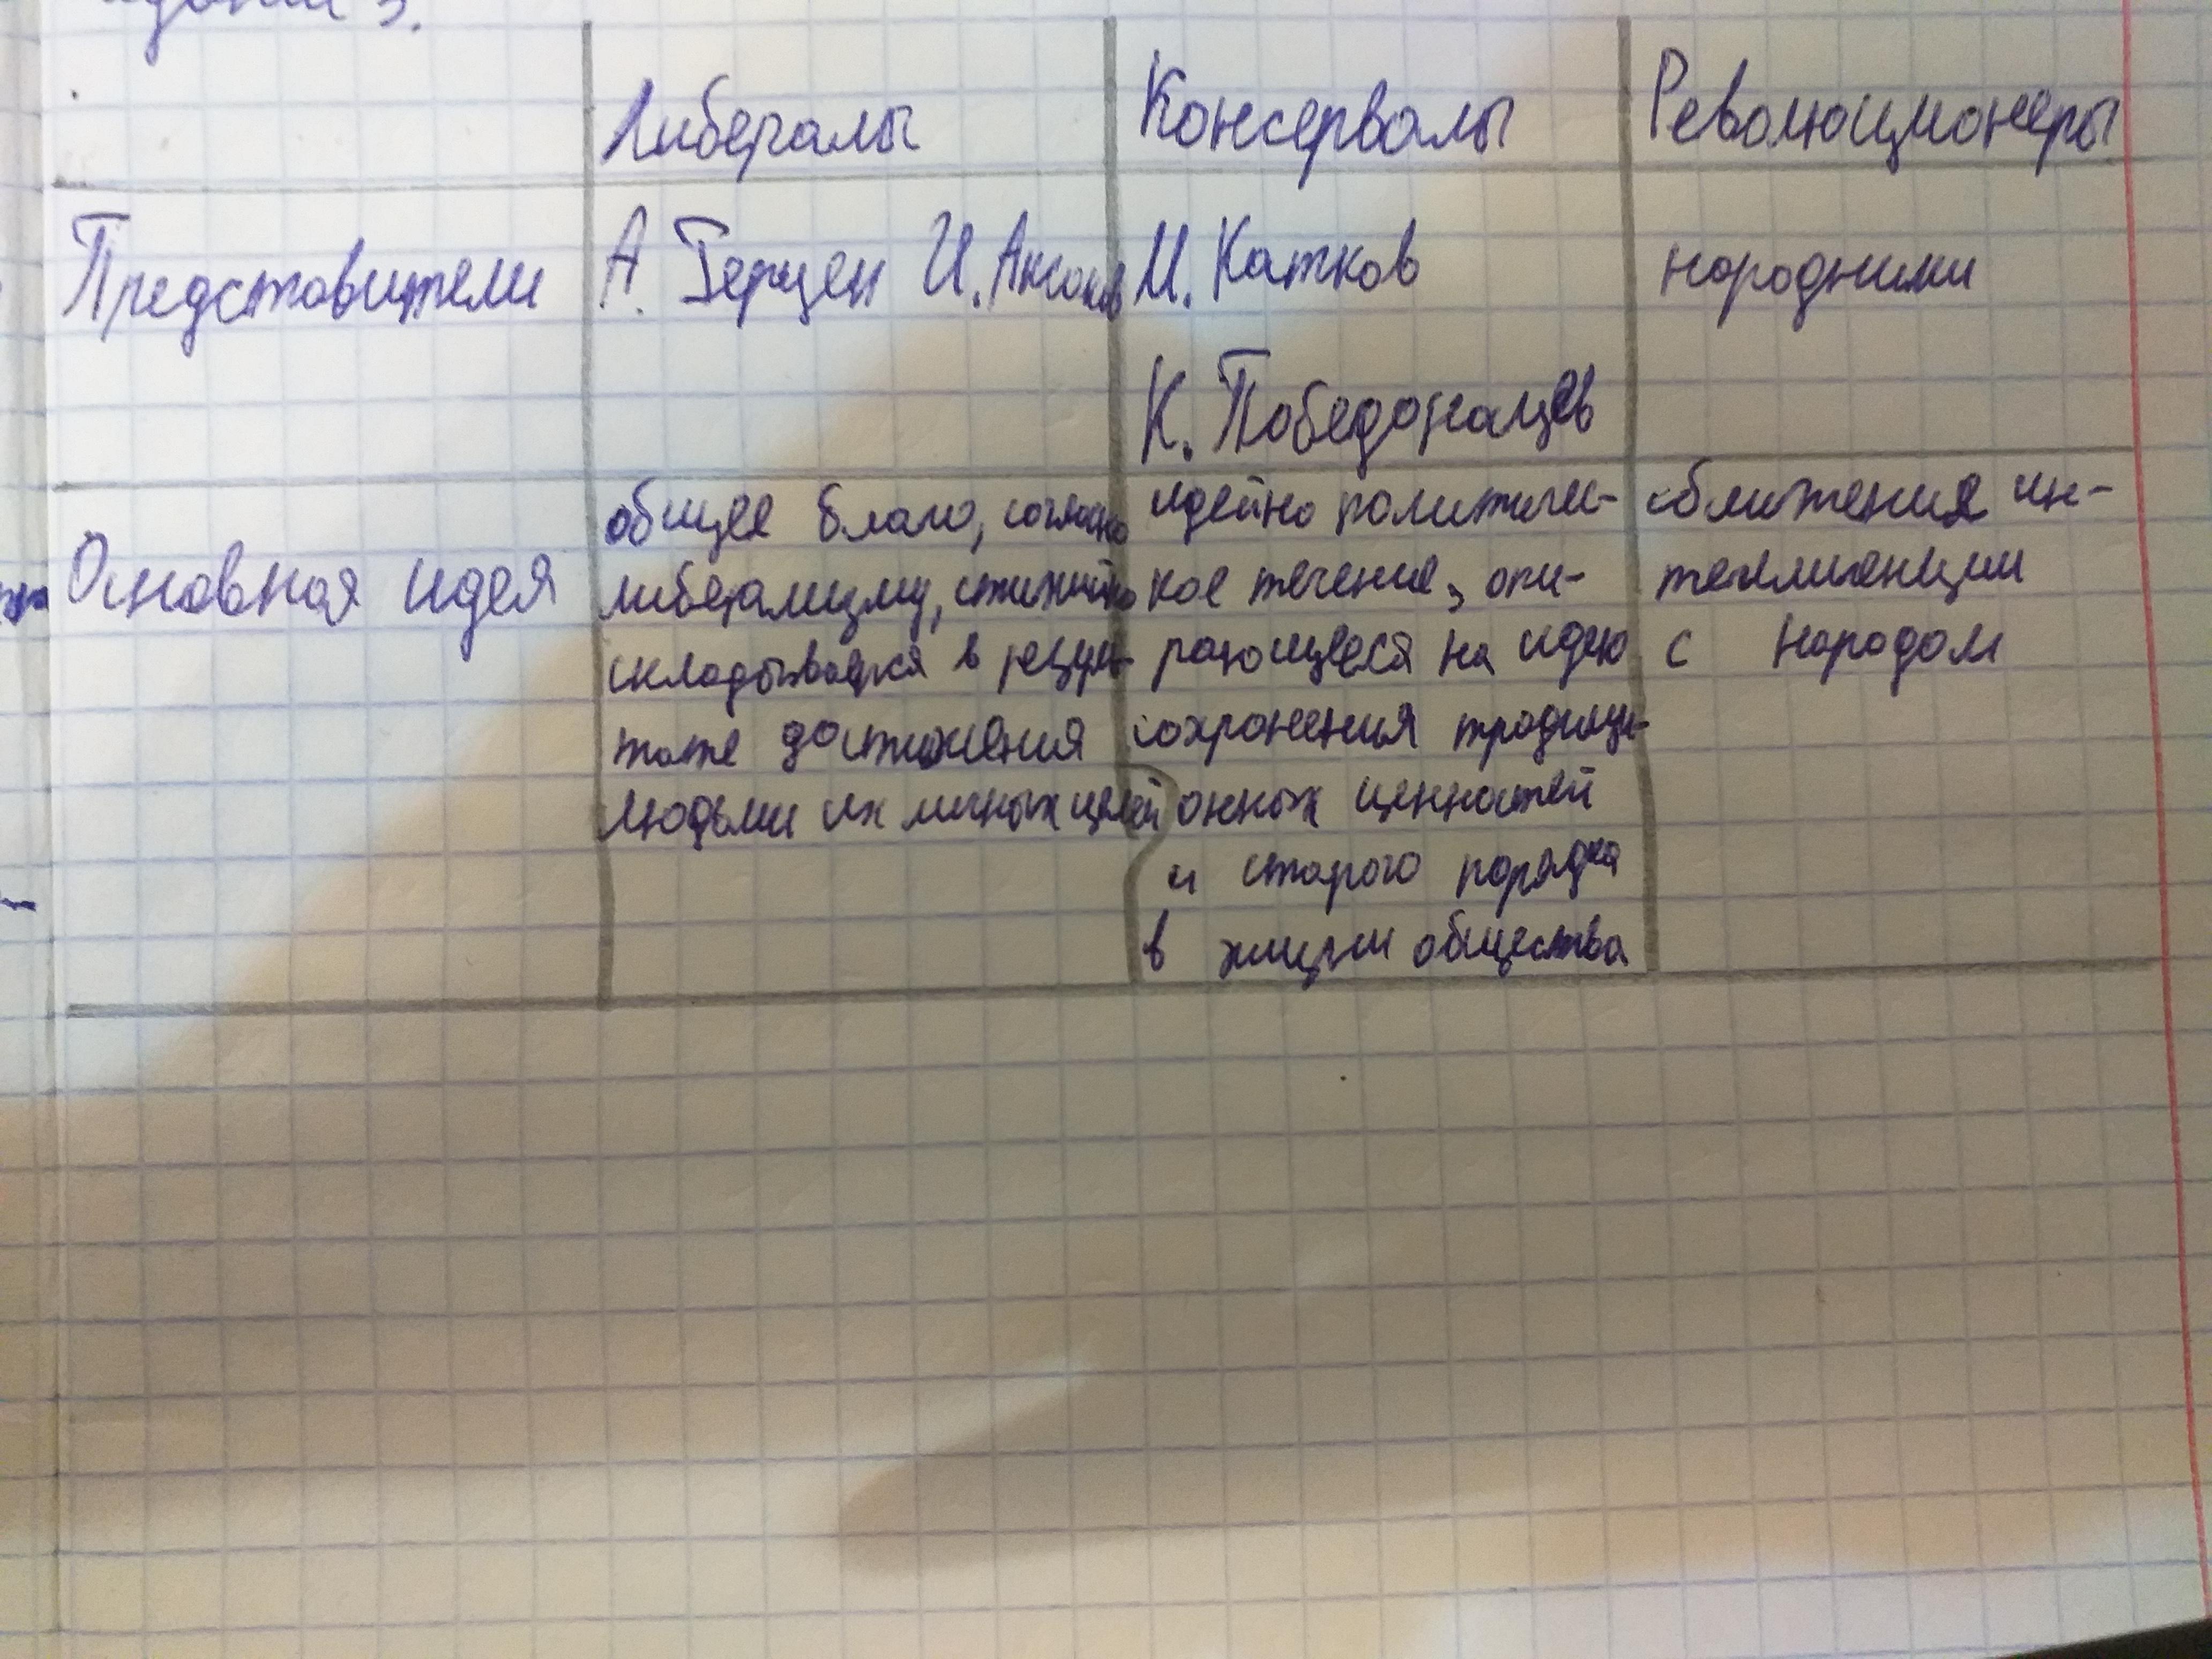 Либералы Консервалы Революционеры
Представители А. Герцен И. Аксаков М. Катков народники
К. Победонацев
Основная идея
общее благо, согласно
либерализму, стихийно
складывается в резуль-
тате достижения
людьми их личных целей
идейно политичес-
кое течение, опи-
рающееся на идею
сохранения традици-
онных ценностей
и старого порядка
в жизни общества
сближения ин-
теллигенции
с народом